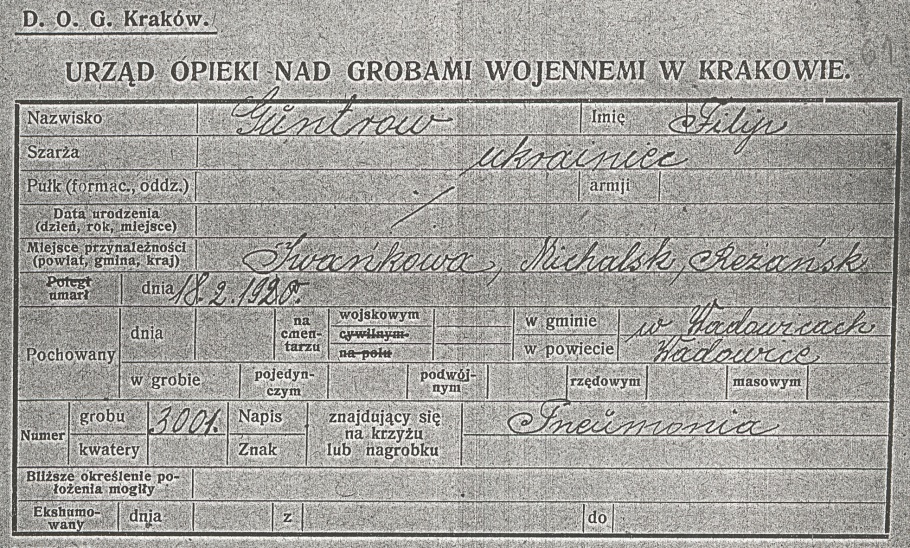 D. O. G. Kraków.
URZĄD OPIEKI NAD GROBAMI WOJENNEMI W KRAKOWIE.
Nazwisko Güntrow Imię Filip
Szarża ukrainiec
Pułk (formac., oddz.) armji
Data urodzenia
(dzień, rok, miejsce)
Miejsce przynależności
(powiat, gmina, kraj) Iwańkowa, Michalsk, Reżańsk
Poległ
umarł dnia 18. 2. 1920.
Pochowany dnia na cmen-tarzu wojskowym w gminie w Wadowicach
cywilnym w powiecie Wadowice
na polu
w grobie pojedyn-czym podwój-nym rzędowym masowym
Numer grobu 3001. Napis znajdujący się na krzyżu lub nagrobku Pneumonia
kwatery Znak
Bliższe określenie po-
łożenia mogiły
Ekshumo-
wany dnia z do